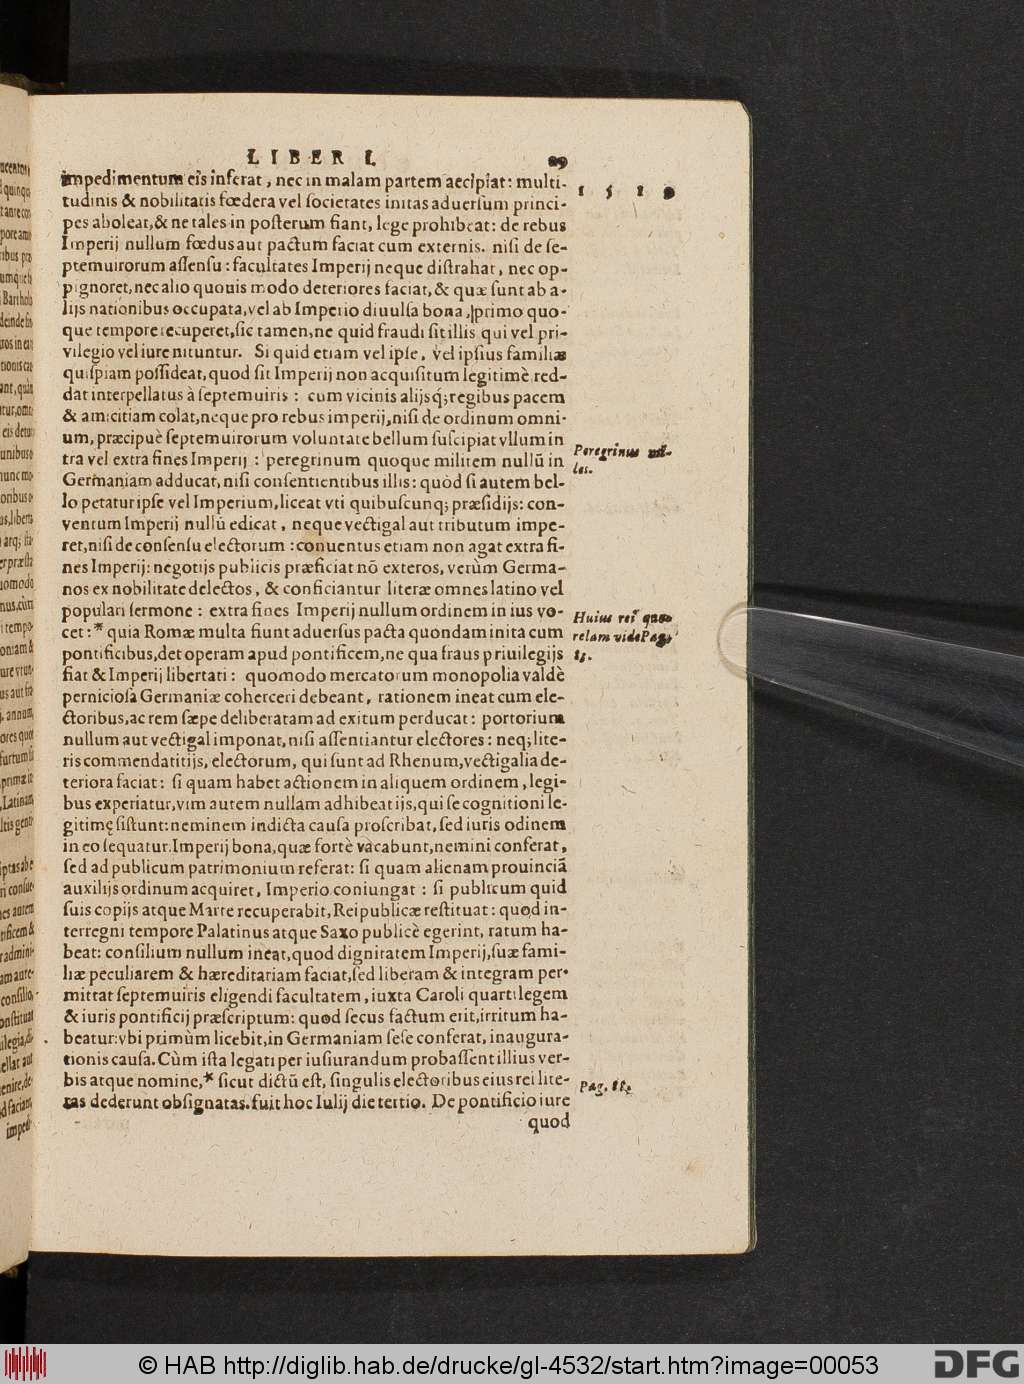 LIBER I. 29
1519
impedimentum eis inferat, nec in malam partem accipiat: multi-
tudinis & nobilitatis fœdera vel ſocietates initas aduerſum princi-
pes aboleat, & ne tales in poſterum fiant, lege prohibeat: de rebus
Imperij nullum fœdus aut pactum faciat cum externis. niſi de ſe-
ptemuirorum aſſenſu: facultates Imperij neque diſtrahat, nec op-
pignoret, nec alio quouis modo deteriores faciat, & quæ ſunt ab a-
lijs nationibus occupata, vel ab Imperio diuulſa bona, primo quo-
que tempore recuperet, ſic tamen, ne quid fraudi ſit illis qui vel pri-
vilegio vel iure nituntur. Si quid etiam vel ipſe, vel ipſius familiæ
quiſpiam poſſideat, quod ſit Imperij non acquiſitum legitimè red-
dat interpellatus à ſeptemuiris: cum vicinis alijsq; regibus pacem
& amicitiam colat, neque pro rebus imperij, niſi de ordinum omni-
um, præcipuè ſeptemuirorum voluntate bellum ſuſcipiat vllum in
tra vel extra fines Imperij: peregrinum quoque militem nullū in
Germaniam adducat, niſi conſentientibus illis: quòd ſi autem bel-
lo petatur ipſe vel Imperium, liceat vti quibuſcunq; præſidijs: con-
ventum Imperij nullū edicat, neque vectigal aut tributum impe-
ret, niſi de conſenſu electorum: conuentus etiam non agat extra fi-
nes Imperij: negotijs publicis præficiat nō exteros, verùm Germa-
nos ex nobilitate delectos, & conficiantur literæ omnes latino vel
populari ſermone: extra fines Imperij nullum ordinem in ius vo-
cet:* quia Romæ multa fiunt aduerſus pacta quondam inita cum
pontificibus, det operam apud pontificem, ne qua fraus priuilegijs
fiat & Imperij libertati: quomodo mercatorum monopolia valdè
pernicioſa Germaniæ coherceri debeant, rationem ineat cum ele-
ctoribus, ac rem ſæpe deliberatam ad exitum perducat: portorium
nullum aut vectigal imponat, niſi aſſentiantur electores: neq; lite-
ris commendatitijs, electorum, qui ſunt ad Rhenum, vectigalia de-
teriora faciat: ſi quam habet actionem in aliquem ordinem, legi-
bus experiatur, vim autem nullam adhibeat ijs, qui ſe cognitioni le-
gitimę ſiſtunt: neminem indicta cauſa proſcribat, ſed iuris odinem
in eo ſequatur. Imperij bona, quæ fortè vacabunt, nemini conferat,
ſed ad publicum patrimonium referat: ſi quam alienam prouinciā
auxilijs ordinum acquiret, Imperio coniungat: ſi publicum quid
ſuis copijs atque Marte recuperabit, Reipublicæ reſtituat: quod in-
terregni tempore Palatinus atque Saxo publicè egerint, ratum ha-
beat: conſilium nullum ineat, quod dignitatem Imperij, ſuæ fami-
liæ peculiarem & hæreditariam faciat, ſed liberam & integram per-
mittat ſeptemuiris eligendi facultatem, iuxta Caroli quarti legem
& iuris pontificij præſcriptum: quod ſecus factum erit, irritum ha-
beatur: vbi primùm licebit, in Germaniam ſeſe conferat, inaugura-
tionis cauſa. Cùm iſta legati per iuſiurandum probaſſent illius ver-
bis atque nomine,* ſicut dictū eſt, ſingulis electoribus eius rei lite-
ras dederunt obſignatas. fuit hoc Iulij die tertio. De pontificio iure
quod
Peregrinus mi-
les.
Huius rei que-
relam vide Pag.
15.
Pag. 11.
© HAB http://diglib.hab.de/drucke/gl-4532/start.htm?image=00053
DFG